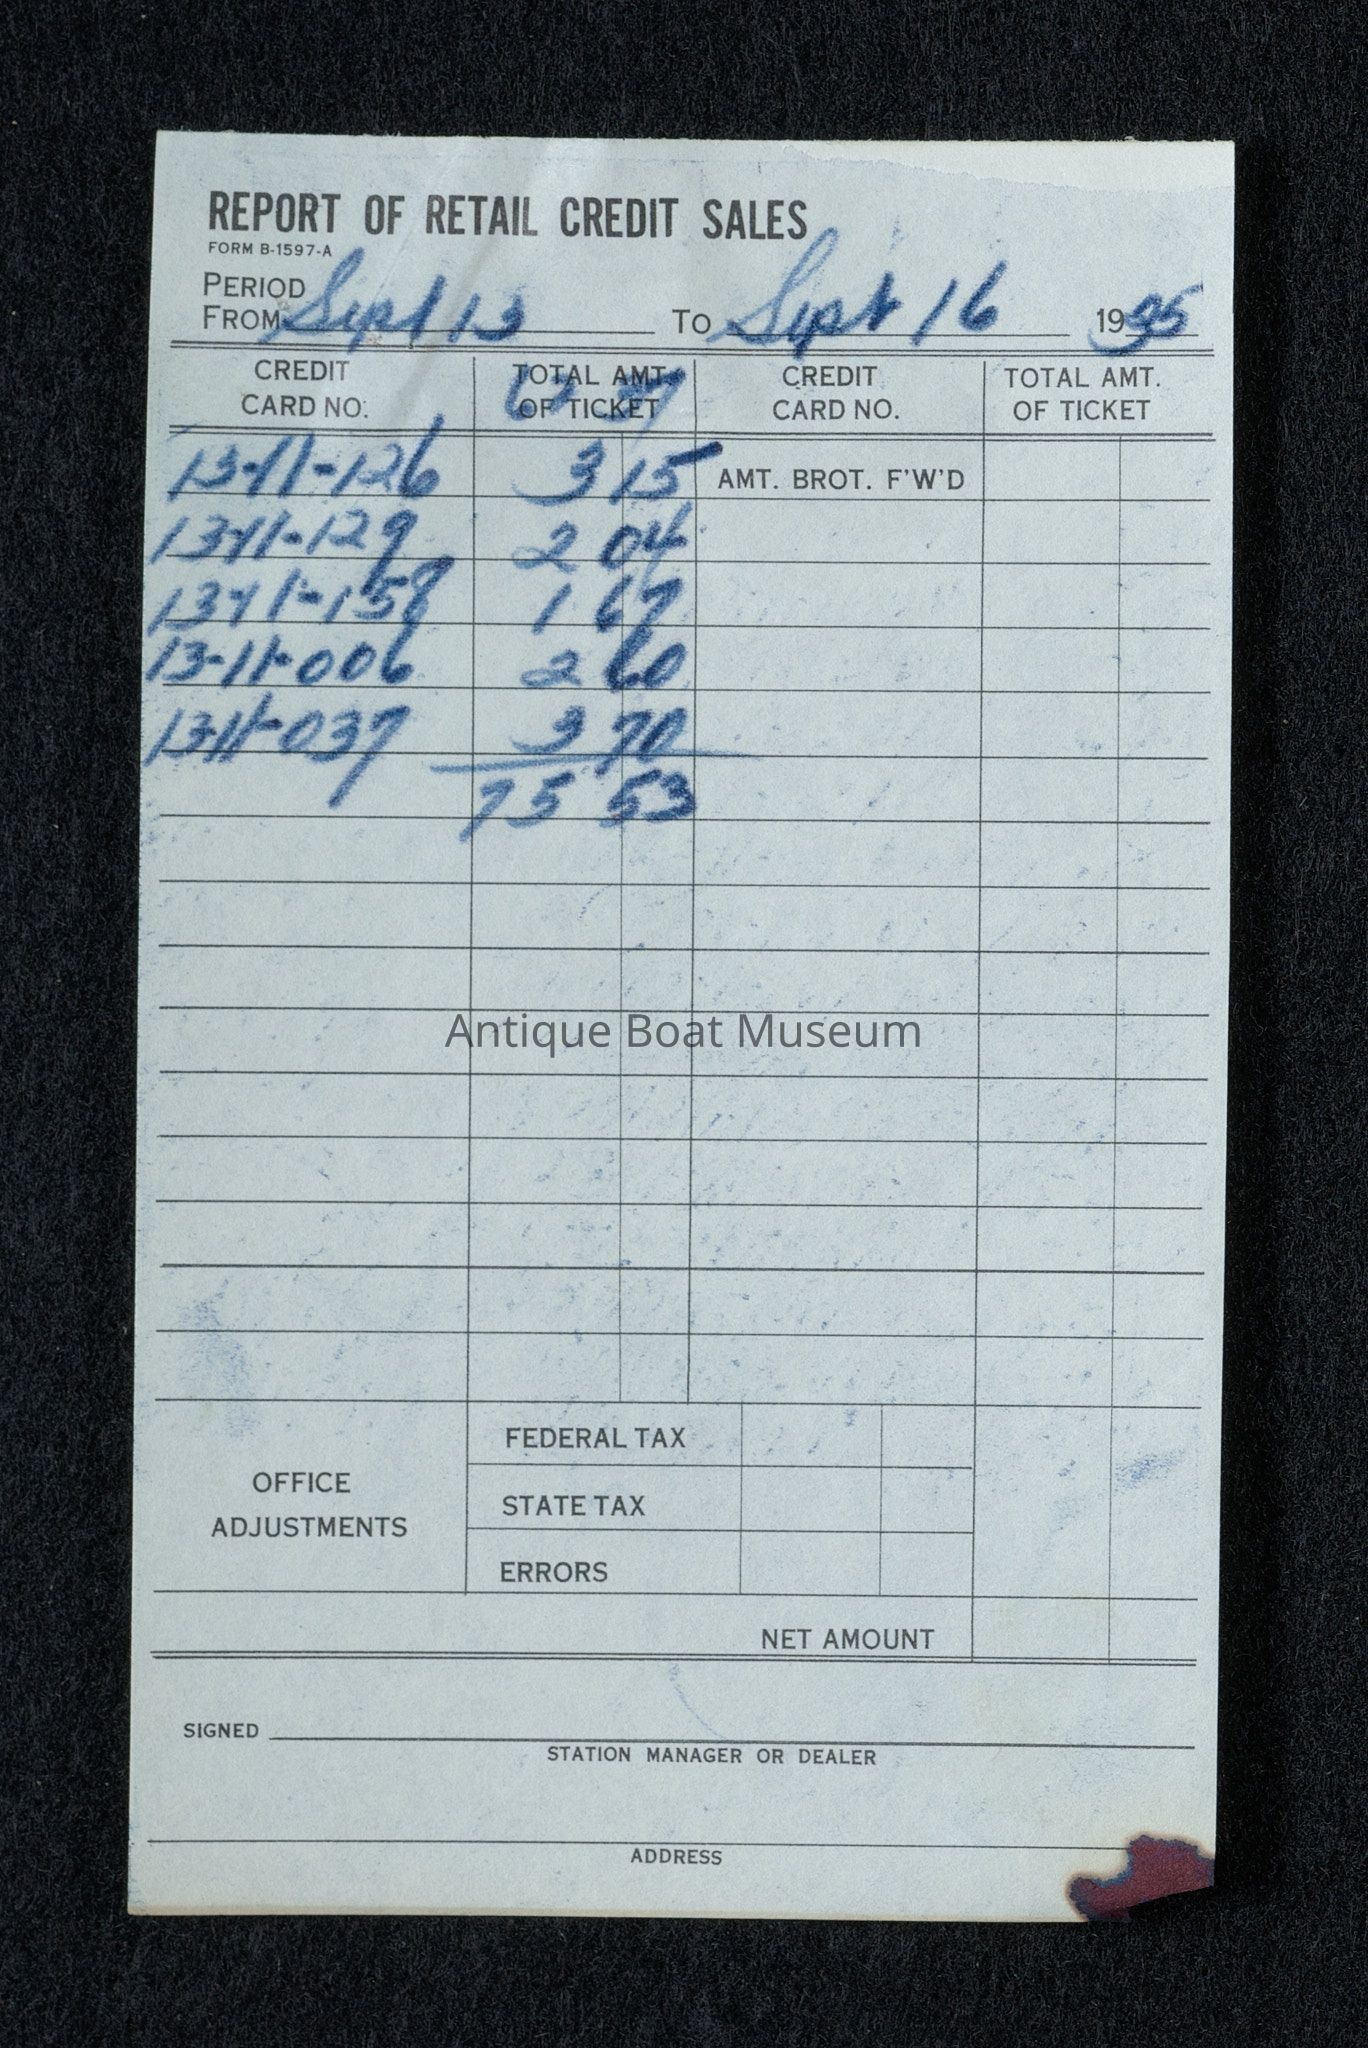 REPORT OF RETAIL CREDIT SALES
FORM B-1597-A
PERIOD
FROM Sept 13 TO Sept 16 19
CREDIT CARD NO. TOTAL AMT. OF TICKET CREDIT CARD NO. TOTAL AMT. OF TICKET
62 37
13-11-126 3 15 AMT. BROT. F'W'D
13-11-129 2 04
13-11-158 1 67
13-11-006 2 60
13-11-037 3 70
75 53
Antique Boat Museum
OFFICE ADJUSTMENTS
FEDERAL TAX
STATE TAX
ERRORS
NET AMOUNT
SIGNED
STATION MANAGER OR DEALER
ADDRESS